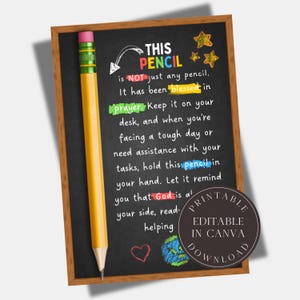 THIS
PENCIL
is NOT just any pencil.
It has been blessed in
prayer. Keep it on your
desk, and when you're
facing a tough day or
need assistance with your
tasks, hold this pencil in
your hand. Let it remind
you that God is
your side,
helping
PRINTABLE
EDITABLE
IN CANVA
DOWNLOAD